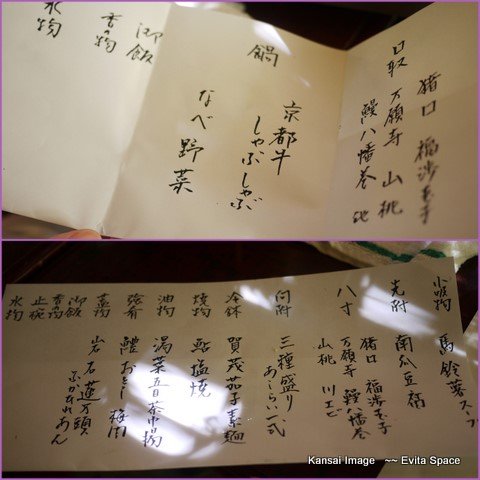 猪口 福渉玉子
口取 万願寺 山桃
鰻八幡巻 他
鍋
京都牛
しゃぶしゃぶ
なべ野菜
御飯
香の物
水物
小吸物 馬鈴薯スープ
先附 南瓜豆腐
八寸
猪口 福渉玉子
万願寺 鰻八幡巻
山桃 川エビ
向附 三種盛り
あしらい一式
冷鉢 賀茂茄子素麺
焼物 鮎塩焼
油物 湯葉五目茶巾揚
強肴 鱧おとし 梅肉
蒸物 岩石蓮万頭
ふかひれあん
御飯
香の物
止椀
水物
Kansai Image ~~ Evita Space